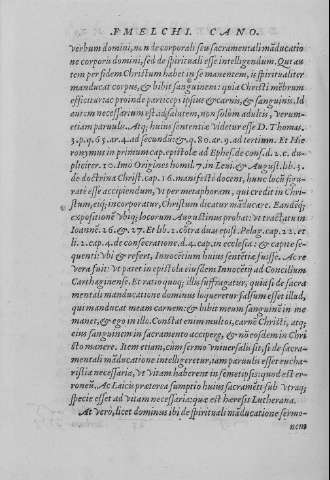 F. MELCHI. CANO.
verbum domini, non de corporali seu sacramentali māducatio
ne corporis domini, sed de spirituali esse intelligendum. Qui au
tem per fidem Christum habet in se manentem, is spiritualiter
manducat corpus, & bibit sanguinem: quia Christi mēbrum
efficitur ac proinde particeps ipsius & carnis, & sanguinis. Id
autem necessarium est ad salutem, non solùm adultis, verum-
etiam paruulis. Atq; huius sententiæ videtur esse D. Thomas.
3. p. q. 63. ar. 4. ad secundū: & q. 80. ar. 9. ad tertium. Et Hie
ronymus in primum cap. epistolæ ad Ephes. de cons. d. 2. c. du-
pliciter. 20. Imo Origines homil. 7. in Leui. & August. lib. 3.
de doctrina Christ. cap. 16. manifestè docent, hunc locū figu-
ratè esse accipiendum, vt per metaphoram, qui credit in Chri-
stum, eiq; incorporatur, Christum dicatur māducare. Eandēq;
expositionē vbiq; locorum Augustinus probat: vt tractatu in
Ioannē. 26. &. 27. Et lib. 2. cōtra duas epist. Pelag. cap. 22. et
li. 2. cap. 4. de consecratione. d. 4. cap. in ecclesia: & capite se-
quenti: vbi & refert, Innocētium huius sentētiæ fuisse. Ac re
vera fuit: vt patet in epistola eiusdem Innocētij ad Concilium
Carthaginense. Et ratio quoq; illis suffragatur, quia si de sacra
mentali manducatione dominus loqueretur falsum esset illud,
qui manducat meam carnem: & bibit meum sanguinē in me
manet, & ego in illo. Constat enim multos, carnē Christi, atq;
eius sanguinem in sacramento accipere, & nō eosdem in Chri
sto manere. Item etiam, cum sermo vniuersalis sit, si de sacra-
mentali māducatione intelligeretur, tam paruulis esset eucha-
ristia necessaria, vt vitam haberent in semetipsis: quod est er-
roneū. Ac Laicis præterea sumptio huius sacramēti sub vtraq;
specie esset ad vitam necessaria: quæ est hæresis Lutherana.
At verò, licet dominus ibi de spirituali māducatione sermo-
nem